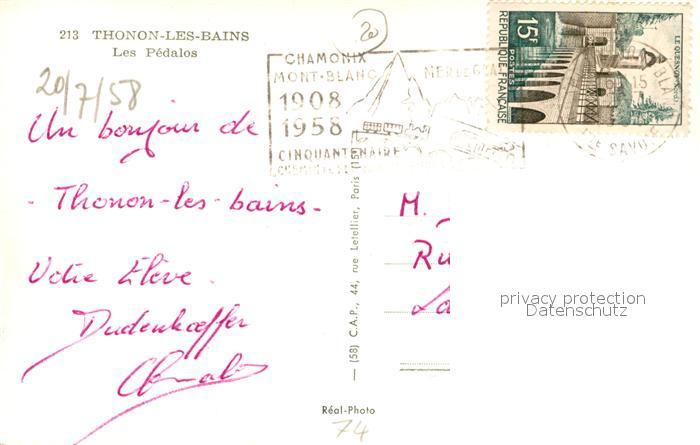 213 THONON-LES-BAINS
Les Pédalos
20/7/58
20
CHAMONIX
MONT-BLANC
1908
1958
CINQUANTENAIRE
15F
POSTES
REPUBLIQUE FRANÇAISE
LE QUESNOY
15
SAVOIE
Un bonjour de
- Thonon-les-bains -
Votre Élève.
Dudenhoeffer
(58) C.A.P., 44, rue Letellier, Paris (15e)
M.
Ru
La
privacy protection
Datenschutz
Réal-Photo
74